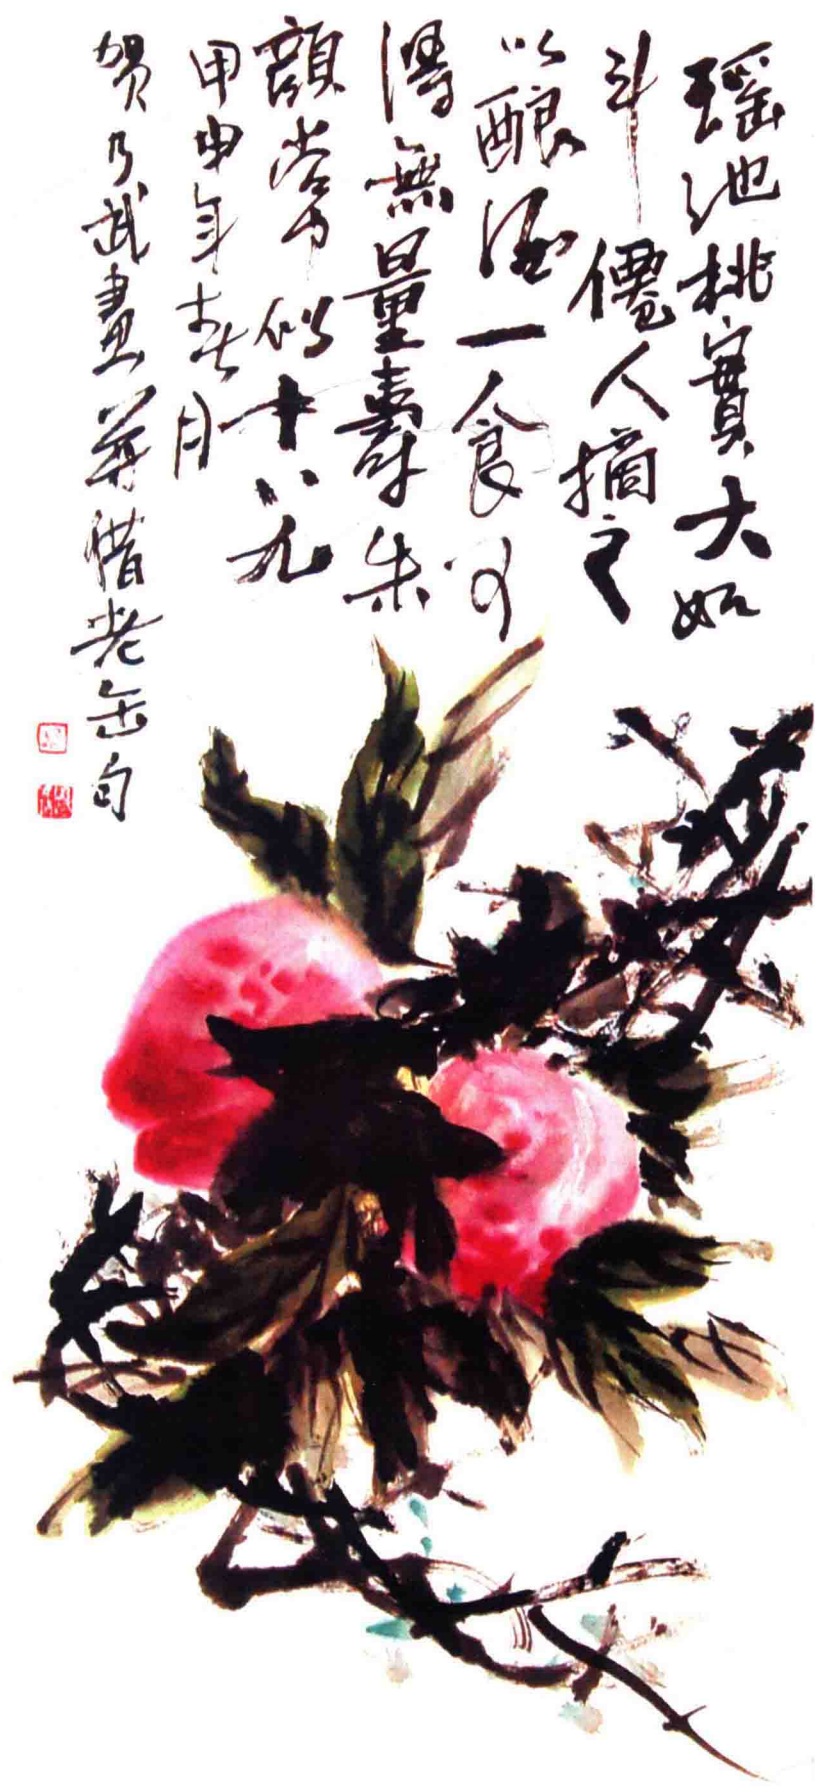 瑶池桃實大如
斗僊人摘之
以釀酒一食可
得無量壽朱
顔常似十八九
甲申年春月
賀乃武畫并借老缶句